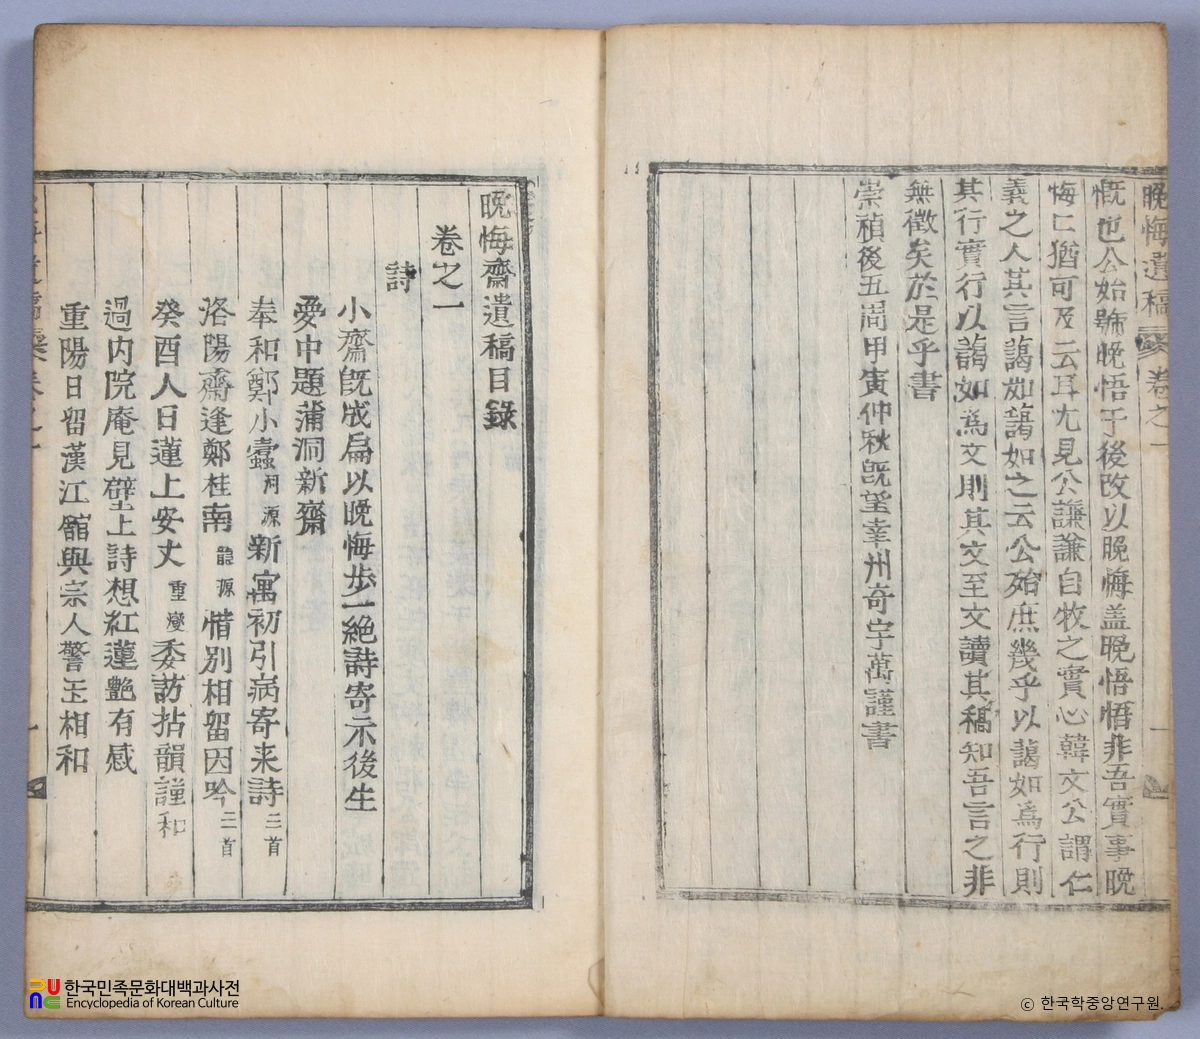 晩悔遺稿 卷之一
慨也公始號晩悟于後改以晩悔盖晩悟悟非吾實事晩
悔已猶可及云耳尤見公謙謙自牧之實心韓文公謂仁
義之人其言藹如藹如之云公殆庶幾乎以藹如爲行則
其行實行以藹如爲文則其文至文讀其稿知吾言之非
無徵矣於是乎書
崇禎後五周甲寅仲秋旣望幸州奇宇萬謹書
晩悔齋遺稿目錄
卷之一
詩
小齋旣成扁以晩悔步一絶詩寄示後生
憂中題蒲洞新齋
奉和鄭小蠹月源新寓初引病寄来詩二首
洛陽齋逢鄭桂南龍源惜別相留因吟二首
癸酉人日蓮上安丈重燮委訪拈韻謹和
過内院庵見壁上詩想紅蓮艶有感
重陽日留漢江舘與宗人警玉相和
한국민족문화대백과사전
Encyclopedia of Korean Culture
© 한국학중앙연구원.